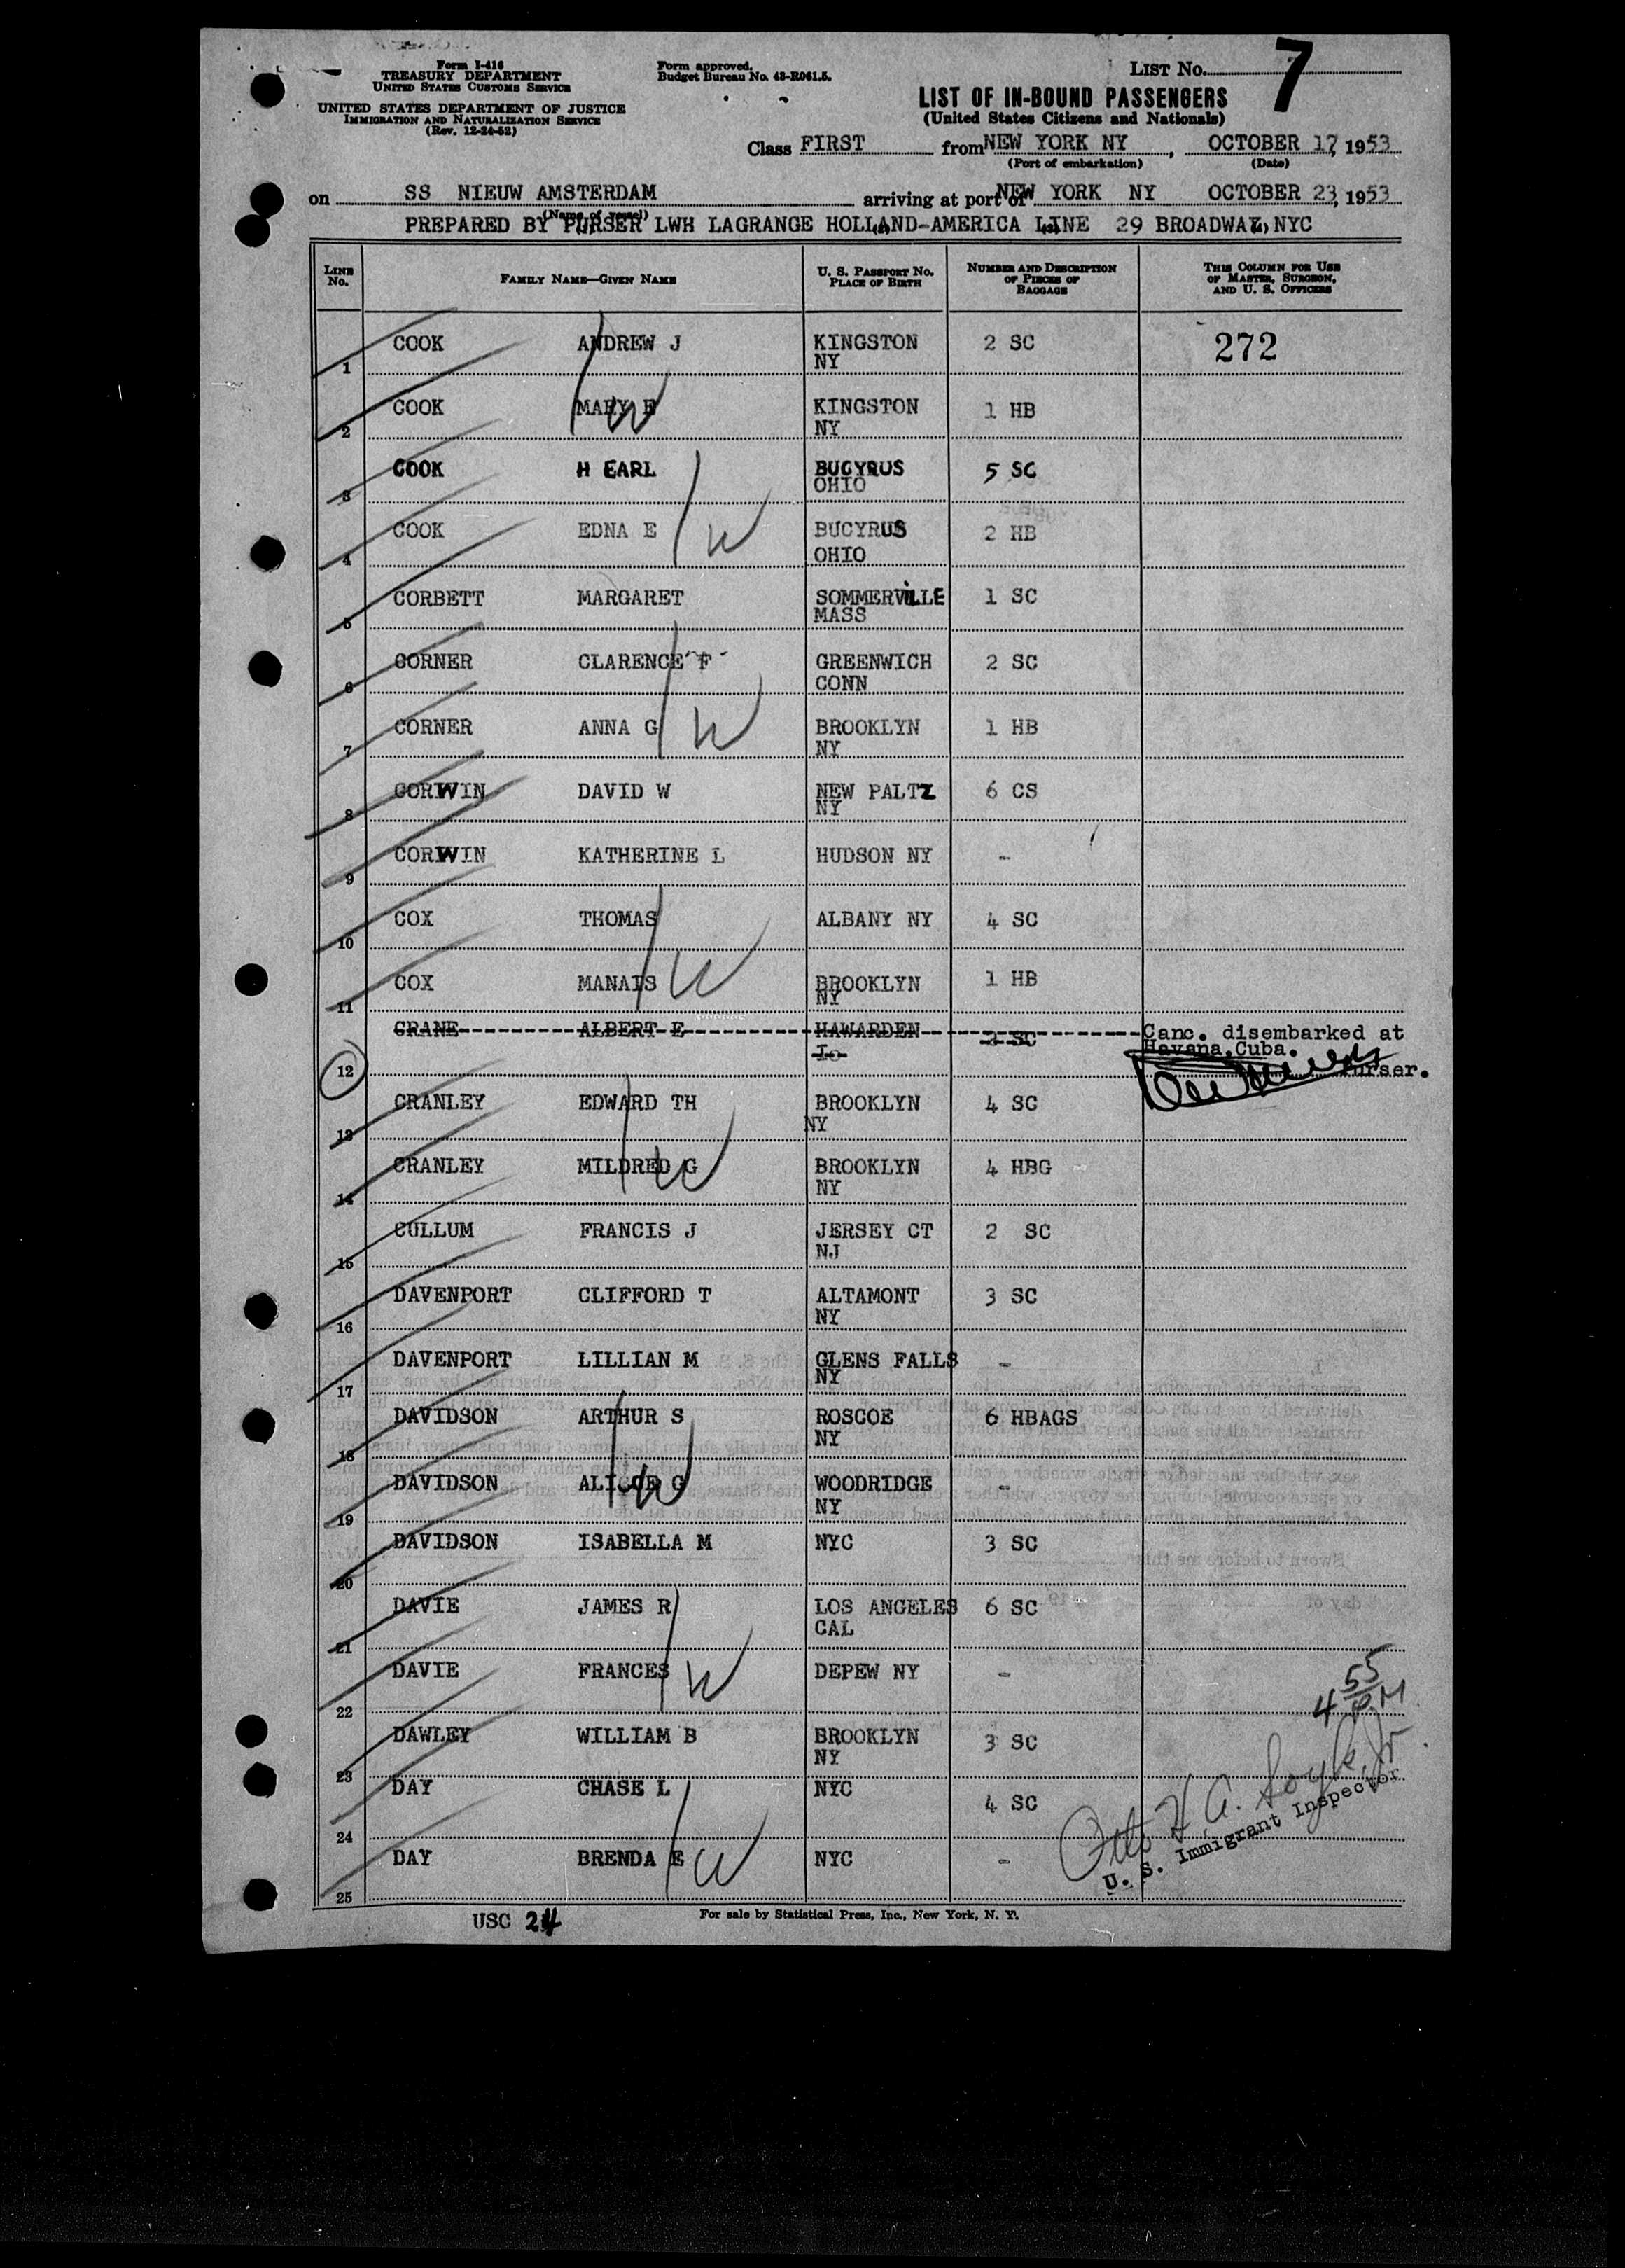 Form I-416
TREASURY DEPARTMENT
UNITED STATES CUSTOMS SERVICE
UNITED STATES DEPARTMENT OF JUSTICE
IMMIGRATION AND NATURALIZATION SERVICE
(Rev. 12-24-52)
Form approved.
Budget Bureau No. 43-R061.5.
LIST No. 7
LIST OF IN-BOUND PASSENGERS
(United States Citizens and Nationals)
Class FIRST from NEW YORK NY, OCTOBER 17, 1953
(Port of embarkation) (Date)
on SS NIEUW AMSTERDAM arriving at port of NEW YORK NY OCTOBER 23, 1953
(Name of vessel)
PREPARED BY PURSER LWH LAGRANGE HOLLAND-AMERICA LINE 29 BROADWAY, NYC
LINE No. FAMILY NAME—GIVEN NAME U. S. PASSPORT No. PLACE OF BIRTH NUMBER AND DESCRIPTION OF PIECES OF BAGGAGE THIS COLUMN FOR USE OF MASTER, SURGEON, AND U. S. OFFICERS
1 COOK ANDREW J KINGSTON NY 2 SC 272
2 COOK MARY E KINGSTON NY 1 HB
W
3 COOK H EARL BUCYRUS OHIO 5 SC
4 COOK EDNA E BUCYRUS OHIO 2 HB
W
5 CORBETT MARGARET SOMMERVILLE MASS 1 SC
6 CORNER CLARENCE F GREENWICH CONN 2 SC
7 CORNER ANNA G BROOKLYN NY 1 HB
W
8 CORWIN DAVID W NEW PALTZ NY 6 CS
9 CORWIN KATHERINE L HUDSON NY -
10 COX THOMAS ALBANY NY 4 SC
11 COX MANAIS BROOKLYN NY 1 HB
W
12 CRANE ALBERT E HAWARDEN Io 2 SC Canc. disembarked at
Havana, Cuba.
Purser.
13 CRANLEY EDWARD TH BROOKLYN NY 4 SC
14 CRANLEY MILDRED G BROOKLYN NY 4 HBG
W
15 CULLUM FRANCIS J JERSEY CT NJ 2 SC
16 DAVENPORT CLIFFORD T ALTAMONT NY 3 SC
17 DAVENPORT LILLIAN M GLENS FALLS NY -
18 DAVIDSON ARTHUR S ROSCOE NY 6 HBAGS
19 DAVIDSON G WOODRIDGE NY -
W
20 DAVIDSON ISABELLA M NYC 3 SC
21 DAVIE JAMES R LOS ANGELES CAL 6 SC
22 DAVIE FRANCES DEPEW NY -
W
4 55 P.M.
23 DAWLEY WILLIAM B BROOKLYN NY 3 SC
24 DAY CHASE L NYC 4 SC
25 DAY BRENDA E NYC -
W
Otto H. A. Jr.
U. S. Immigrant Inspector
USC 24
For sale by Statistical Press, Inc., New York, N. Y.